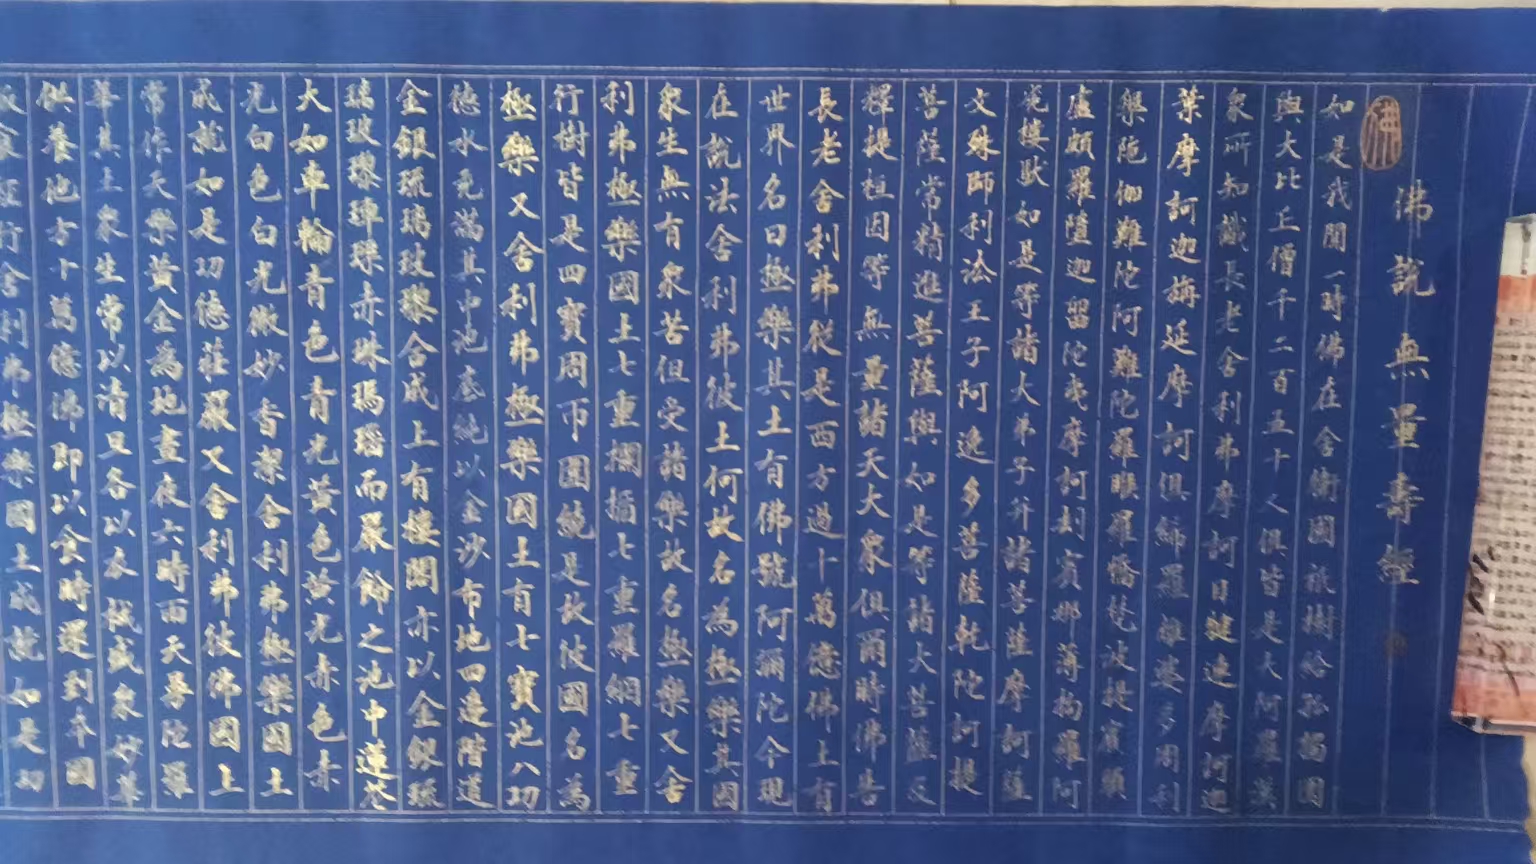 佛
佛說無量壽經
如是我聞一時佛在舍衛國祇樹給孤獨園
與大比丘僧千二百五十人俱皆是大阿羅漢
衆所知識長老舍利弗摩訶目犍連摩訶迦
葉摩訶迦旃延摩訶俱絺羅離婆多周利
槃陁伽難陀阿難陀羅睺羅憍梵波提賓頭
盧頗羅墮迦留陀夷摩訶劫賓那薄拘羅阿
㝹樓馱如是等諸大弟子并諸菩薩摩訶薩
文殊師利法王子阿逸多菩薩乾陀訶提
菩薩常精進菩薩與如是等諸大菩薩及
釋提桓因等無量諸天大衆俱爾時佛告
長老舍利弗從是西方過十萬億佛土有
世界名曰極樂其土有佛號阿彌陀今現
在說法舍利弗彼土何故名為極樂其國
衆生無有衆苦但受諸樂故名極樂又舍
利弗極樂國土七重欄楯七重羅網七重
行樹皆是四寶周帀圍繞是故彼國名為
極樂又舍利弗極樂國土有七寶池八功
德水充滿其中池底純以金沙布地四邊階道
金銀琉璃玻瓈合成上有樓閣亦以金銀琉
璃玻瓈硨磲赤珠瑪瑙而嚴飾之池中蓮花
大如車輪青色青光黃色黃光赤色赤
光白色白光微妙香潔舍利弗極樂國土
成就如是功德莊嚴又舍利弗彼佛國土
常作天樂黃金為地晝夜六時雨天曼陀羅
華其土衆生常以清旦各以衣祴盛衆妙華
供養他方十萬億佛即以食時還到本國
飯食經行舍利弗極樂國土成就如是功